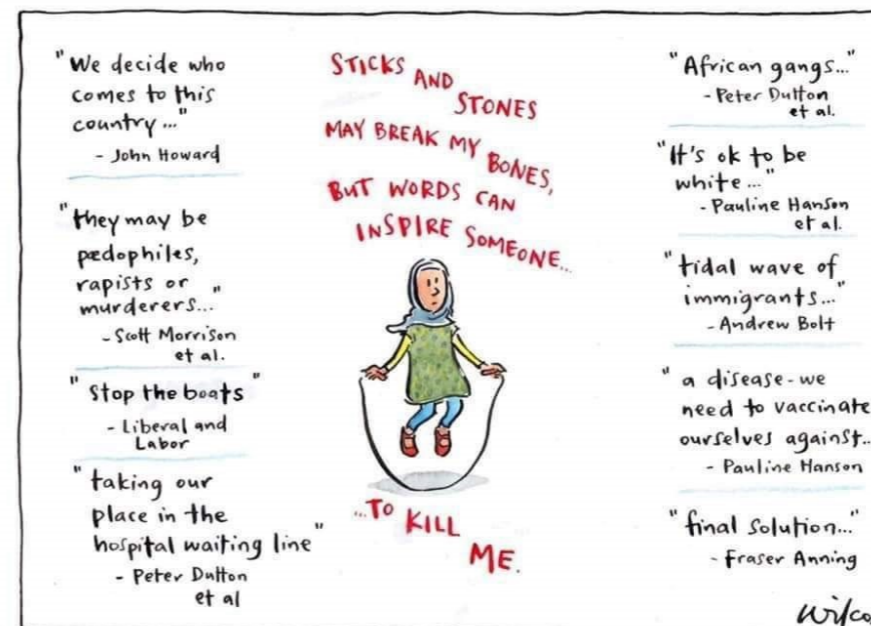 "We decide who
comes to this
country..."
- John Howard
"they may be
pædophiles,
rapists or
murderers..."
- Scott Morrison
et al.
"Stop the boats"
- Liberal and
Labor
"taking our
place in the
hospital waiting line"
- Peter Dutton
et al
STICKS AND
STONES
MAY BREAK MY
BONES,
BUT WORDS CAN
INSPIRE SOMEONE...
...TO KILL
ME.
"African gangs..."
- Peter Dutton
et al.
"It's ok to be
white..."
- Pauline Hanson
et al.
"tidal wave of
immigrants..."
- Andrew Bolt
"a disease - we
need to vaccinate
ourselves against..
- Pauline Hanson
"final solution..."
- Fraser Anning
wilco